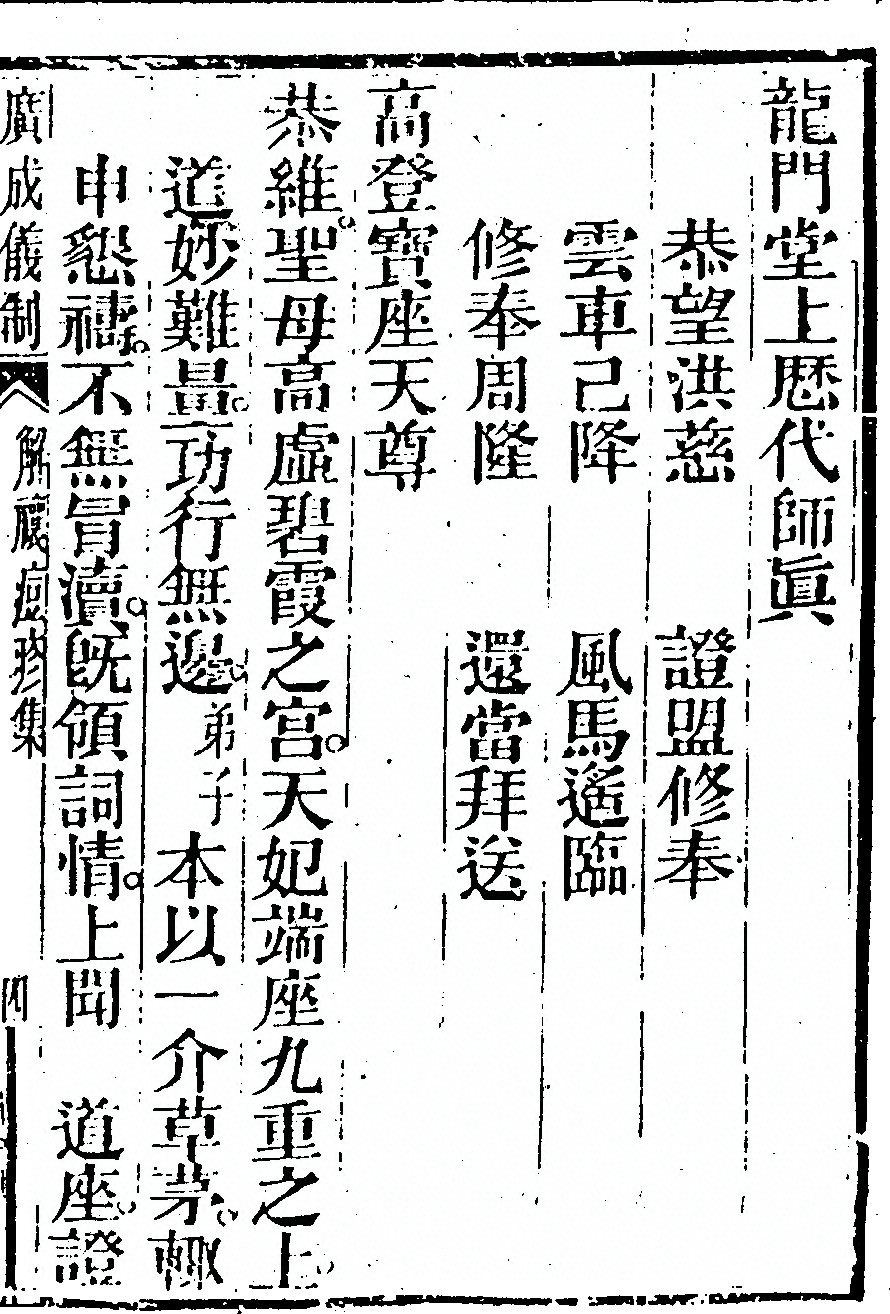 龍門堂上歷代師眞
恭望洪慈　證盟修奉
雲車已降　風馬遙臨
修奉周隆　還當拜送
高登寶座天尊
恭維聖母高虛碧霞之宮。天妃端座九重之上。
道妙難量。功行無邊。弟子本以一介草茅。輙
申懇禱。不無冒瀆。旣領詞情。上聞　道座。證
廣成儀制
解禳痘疹集
四